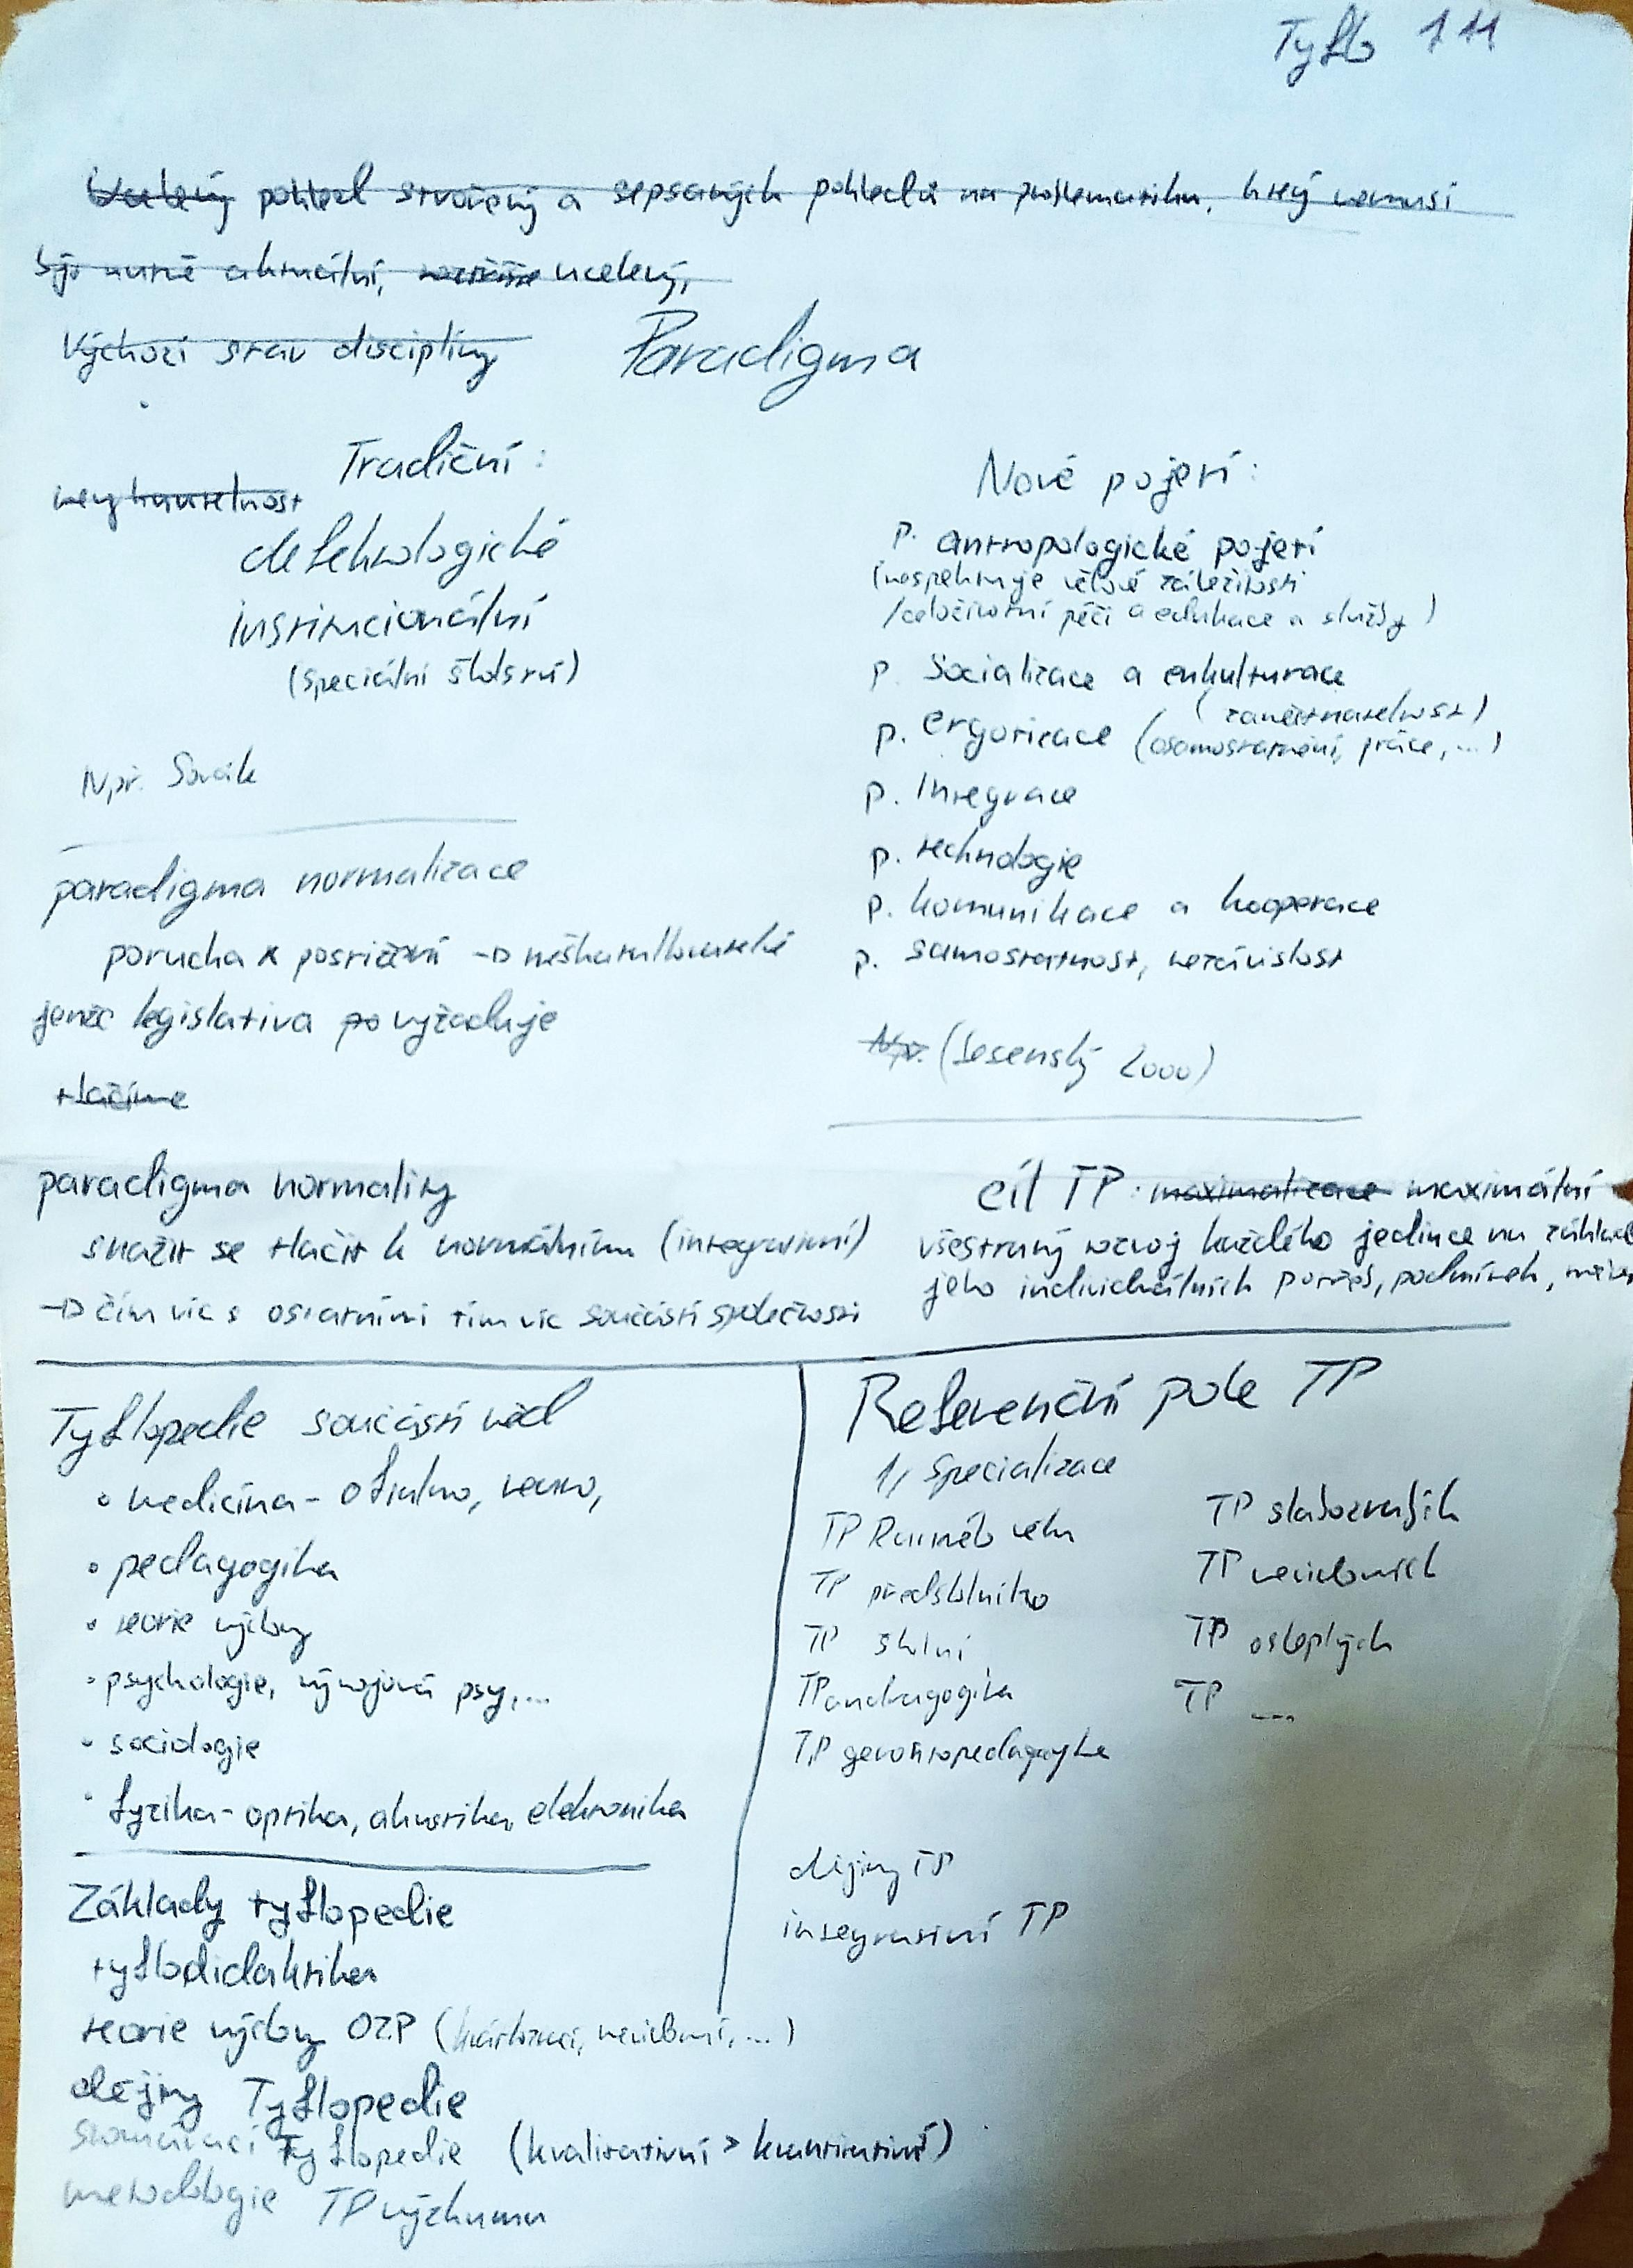 Tyflo 1 11
Ucelený pohled stvořený a sepsaných pohledů na problematiku, který nemusí
být nutně aktuální, ucelený,
Výchozí stav disciplíny
Paradigma
Tradiční:
nevyhnutelnost
defektologické
institucionální
(speciální školství)
Např. Sovák
paradigma normalizace
porucha x postižení → neškatulkovatelné
jenže legislativa po vyžaduje
tlačíme
paradigma normality
snažit se tlačit k normálnímu (integrativní)
→ čím víc s ostatními tím víc součástí společnosti
Nové pojetí:
p. antropologické pojetí
(respektuje věkové záležitosti
/celoživotní péči a edukace a služby)
p. Socializace a enkulturace
(zaměstnatelnost)
p. ergotizace (osamostatnění, práce, ...)
p. Integrace
p. technologie
p. komunikace a kooperace
p. samostatnost, nezávislost
Np. (Jesenský 2000)
cíl TP: maximalizace maximální
všestranný rozvoj každého jedince na základě
jeho individuálních potřeb, podmínek,
Tyflopedie součástí věd
• medicína - oftalmo, neuro,
• pedagogika
• teorie výchovy
• psychologie, vývojová psy, ...
• sociologie
• fyzika - optika, akustika, elektronika
Základy tyflopedie
tyflodidaktika
teorie výchovy OZP (slabozrací, nevidomí, ...)
dějiny Tyflopedie
srovnávací Tyflopedie (kvalitativní > kvantitativní)
metodologie TP výzkumu
Referenční pole TP
1, Specializace
TP Raného věku
TP předškolního
TP školní
TP andragogika
TP gerontopedagogika
TP slabozrakých
TP nevidomých
TP osleplých
TP ...
dějiny TP
integrativní TP